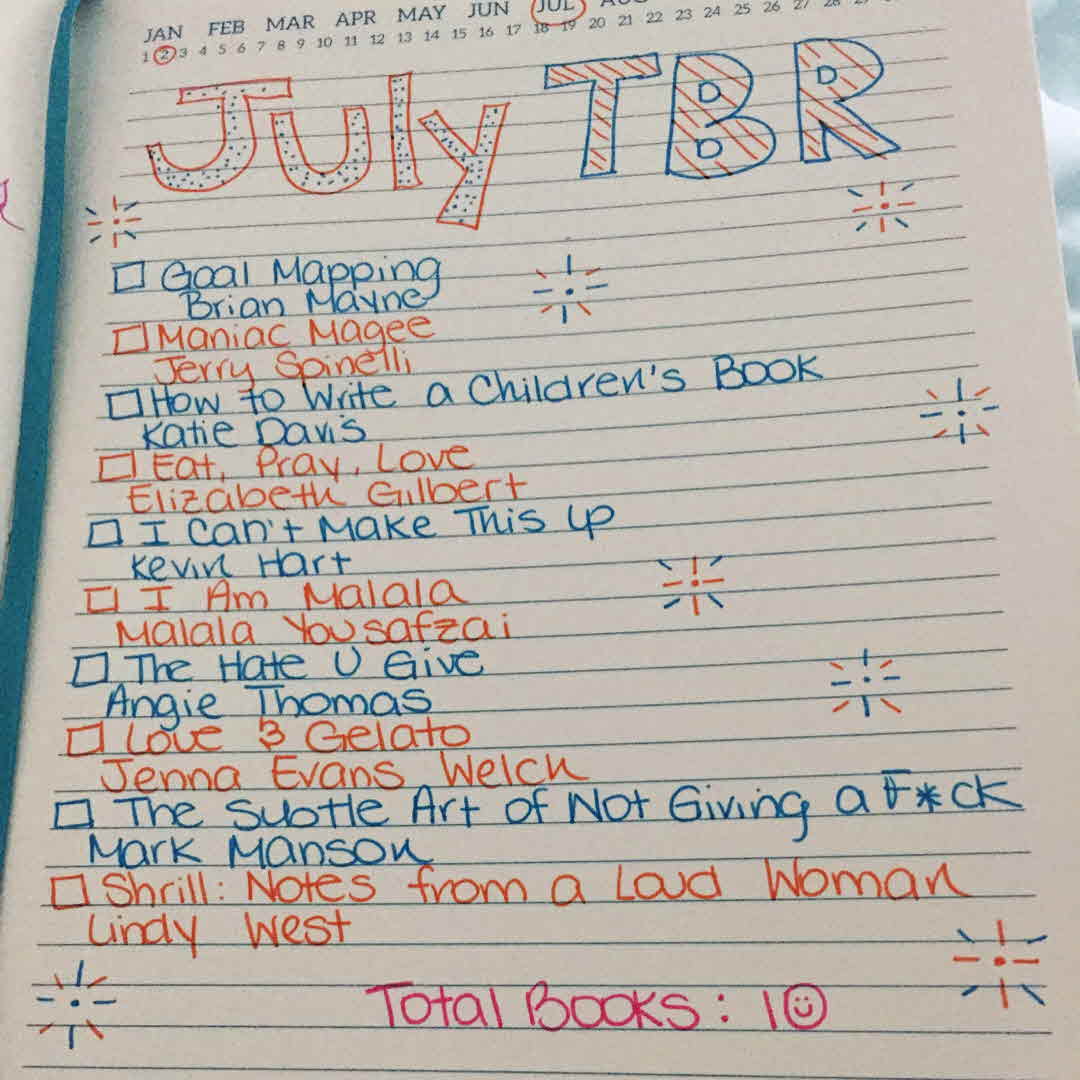 JAN FEB MAR APR MAY JUN JUL
1 2 3 4 5 6 7 8 9 10 11 12 13 14 15 16 17 18 19 20 21 22 23 24 25 26 27 28
July TBR
Goal Mapping
Brian Mayne
Maniac Magee
Jerry Spinelli
How to Write a Children's Book
Katie Davis
Eat, Pray, Love
Elizabeth Gilbert
I Can't Make This Up
Kevin Hart
I Am Malala
Malala Yousafzai
The Hate U Give
Angie Thomas
Love & Gelato
Jenna Evans Welch
The Subtle Art of Not Giving a F*ck
Mark Manson
Shrill: Notes from a Loud Woman
Lindy West
Total Books: 10